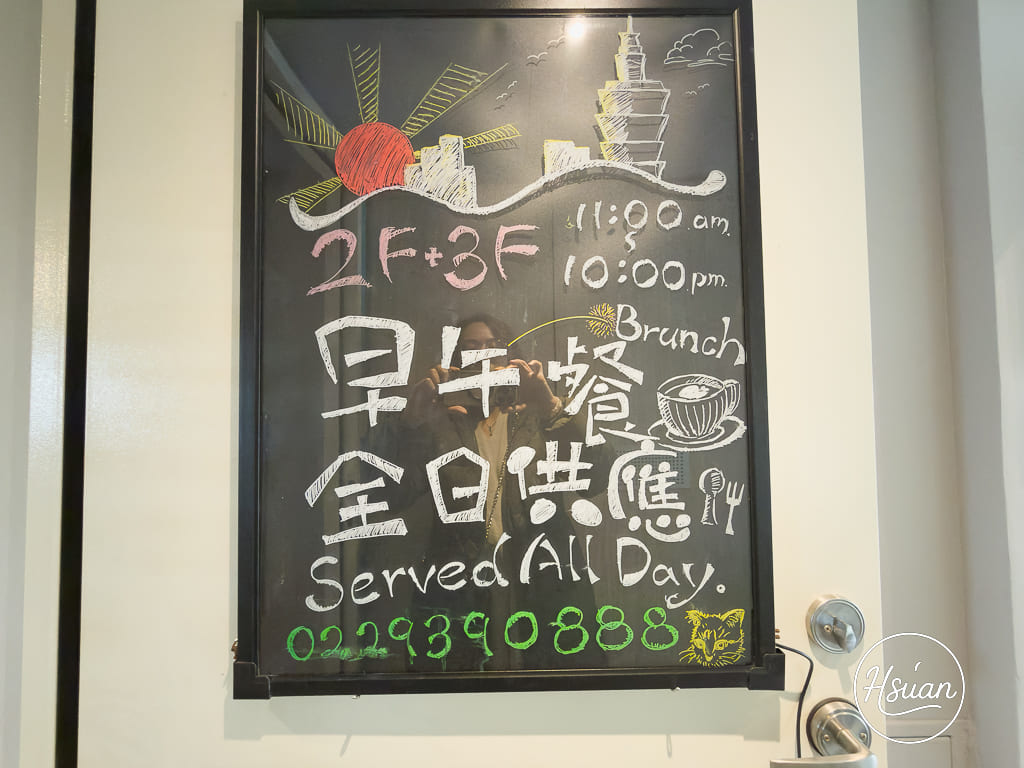 2F+3F
11:00 am.
10:00 pm.
Brunch
早午餐
全日供應
Served All Day.
0229390888
Hsuan